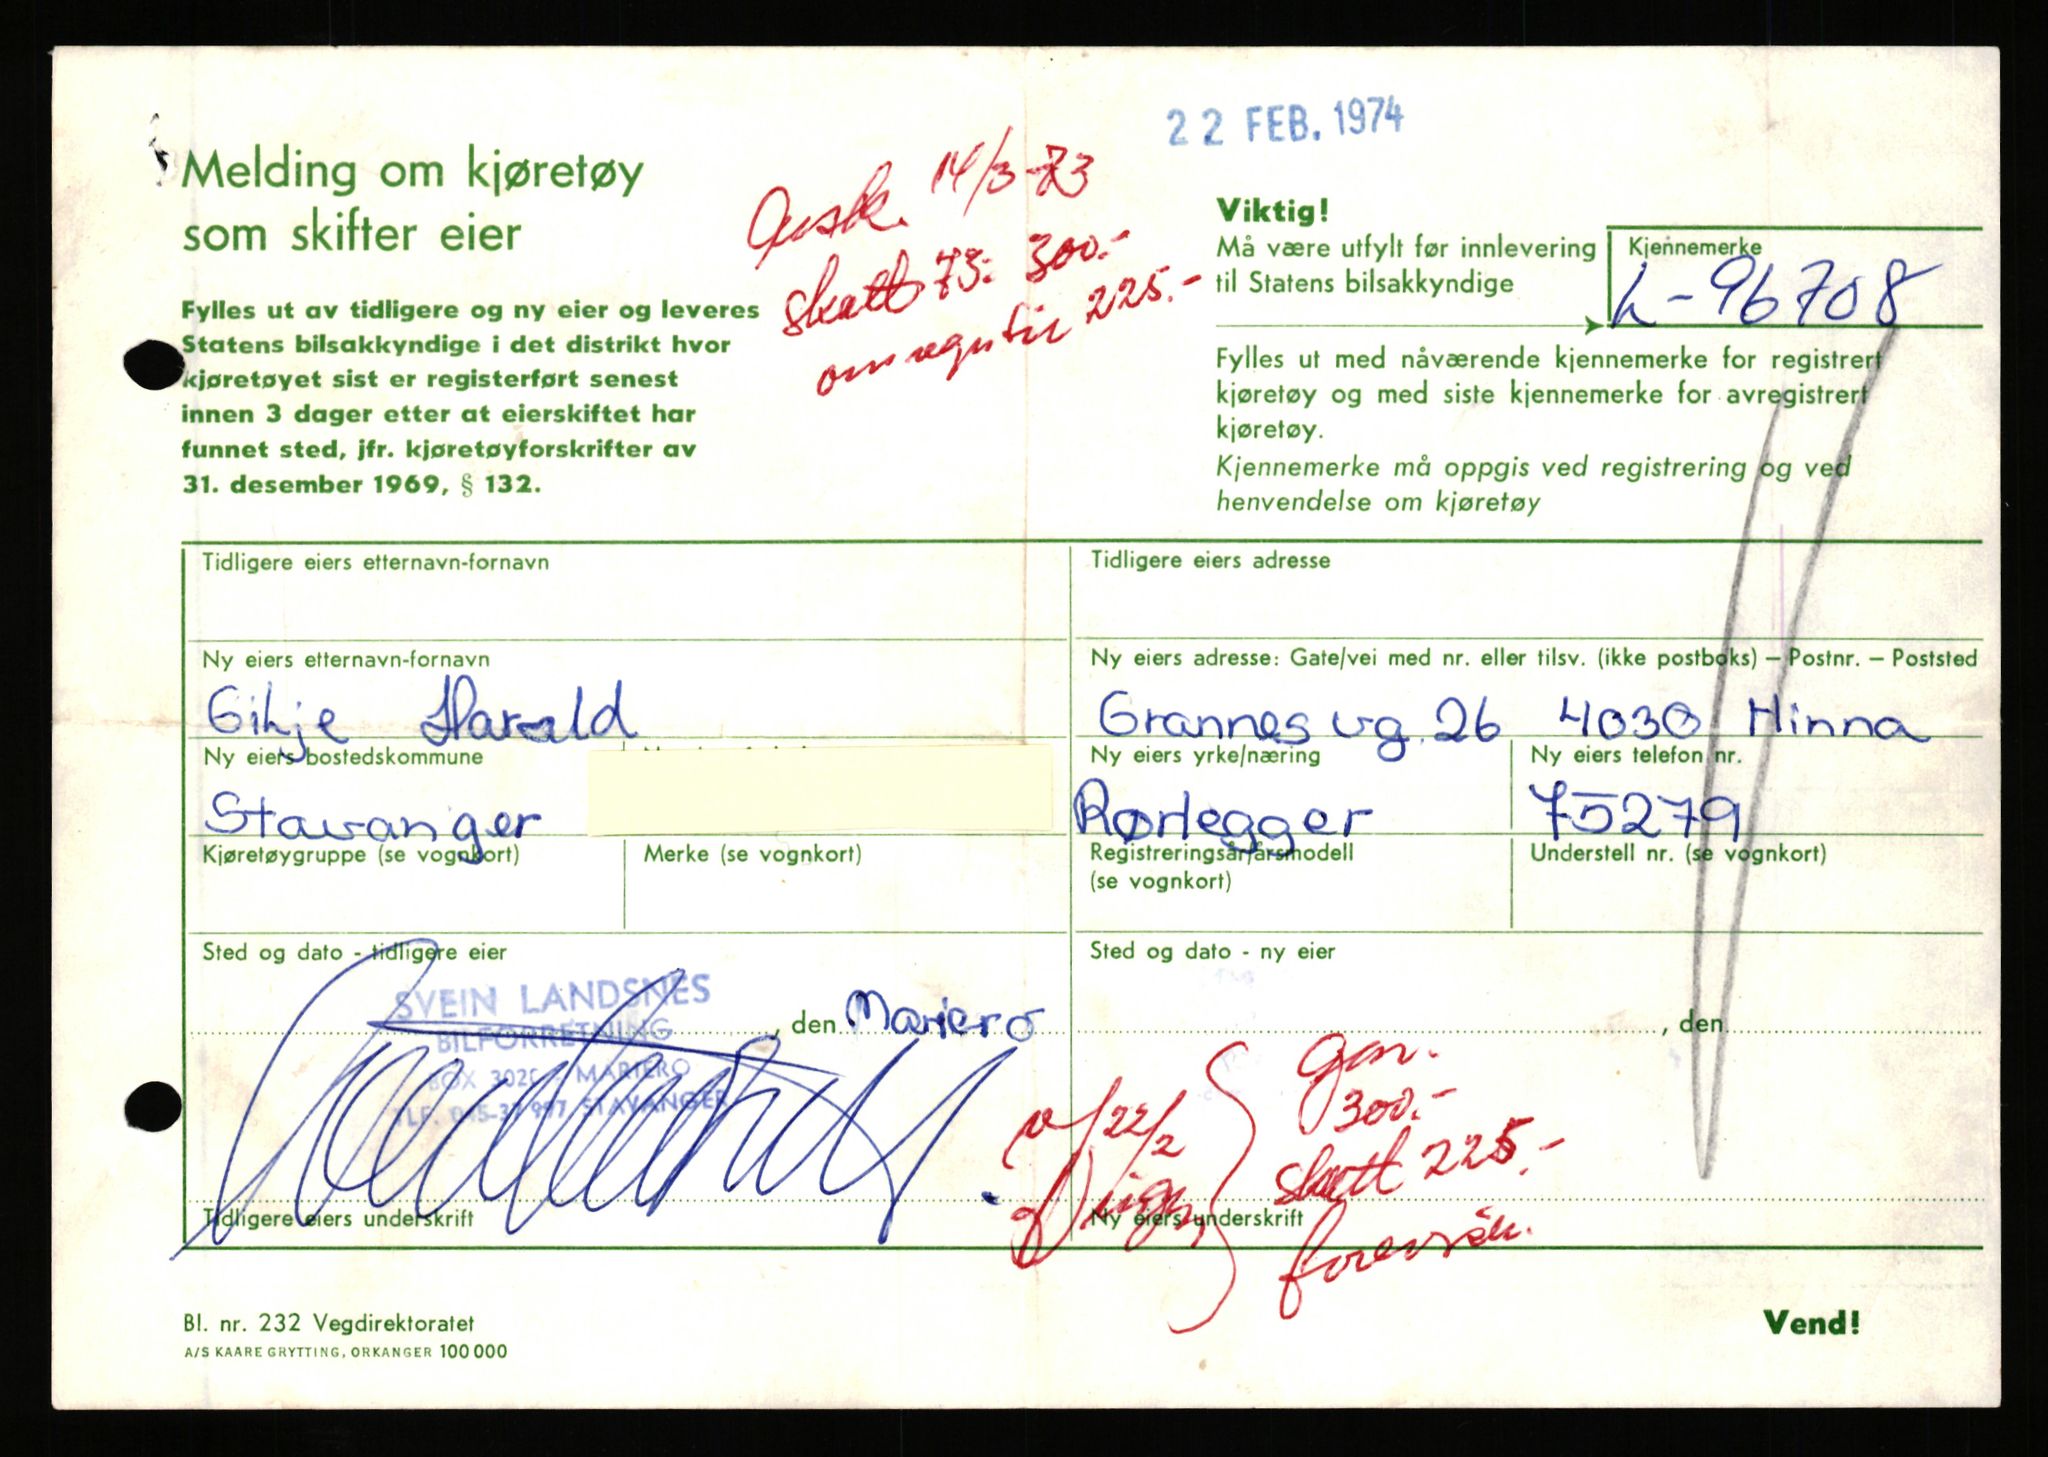 22 FEB. 1974
Melding om kjøretøy
som skifter eier
Avsk. 14/3-73
skatt 73: 300.-
omregistr 225.-
Fylles ut av tidligere og ny eier og leveres
Statens bilsakkyndige i det distrikt hvor
kjøretøyet sist er registerført senest
innen 3 dager etter at eierskiftet har
funnet sted, jfr. kjøretøyforskrifter av
31. desember 1969, § 132.
Viktig!
Må være utfylt før innlevering
til Statens bilsakkyndige
Kjennemerke
L-96708
Fylles ut med nåværende kjennemerke for registrert
kjøretøy og med siste kjennemerke for avregistrert
kjøretøy.
Kjennemerke må oppgis ved registrering og ved
henvendelse om kjøretøy
Tidligere eiers etternavn-fornavn
Tidligere eiers adresse
Ny eiers etternavn-fornavn
Gilje Harald
Ny eiers adresse: Gate/vei med nr. eller tilsv. (ikke postboks) – Postnr. – Poststed
Grannes vg. 26 4030 Hinna
Ny eiers bostedskommune
Stavanger
Ny eiers yrke/næring
Rørlegger
Ny eiers telefon nr.
75279
Kjøretøygruppe (se vognkort)
Merke (se vognkort)
Registreringsår/årsmodell
(se vognkort)
Understell nr. (se vognkort)
Sted og dato - tidligere eier
SVEIN LANDSNES
BILFORRETNING
BOX 3020 - MARIERO
TLF. 045- 997 STAVANGER
, den Mariero
Tidligere eiers underskrift
Sted og dato - ny eier
, den
v/22/2
gen.
300.-
skatt 225.-
Ny eiers underskrift
Bl. nr. 232 Vegdirektoratet
A/S KAARE GRYTTING, ORKANGER 100 000
Vend!